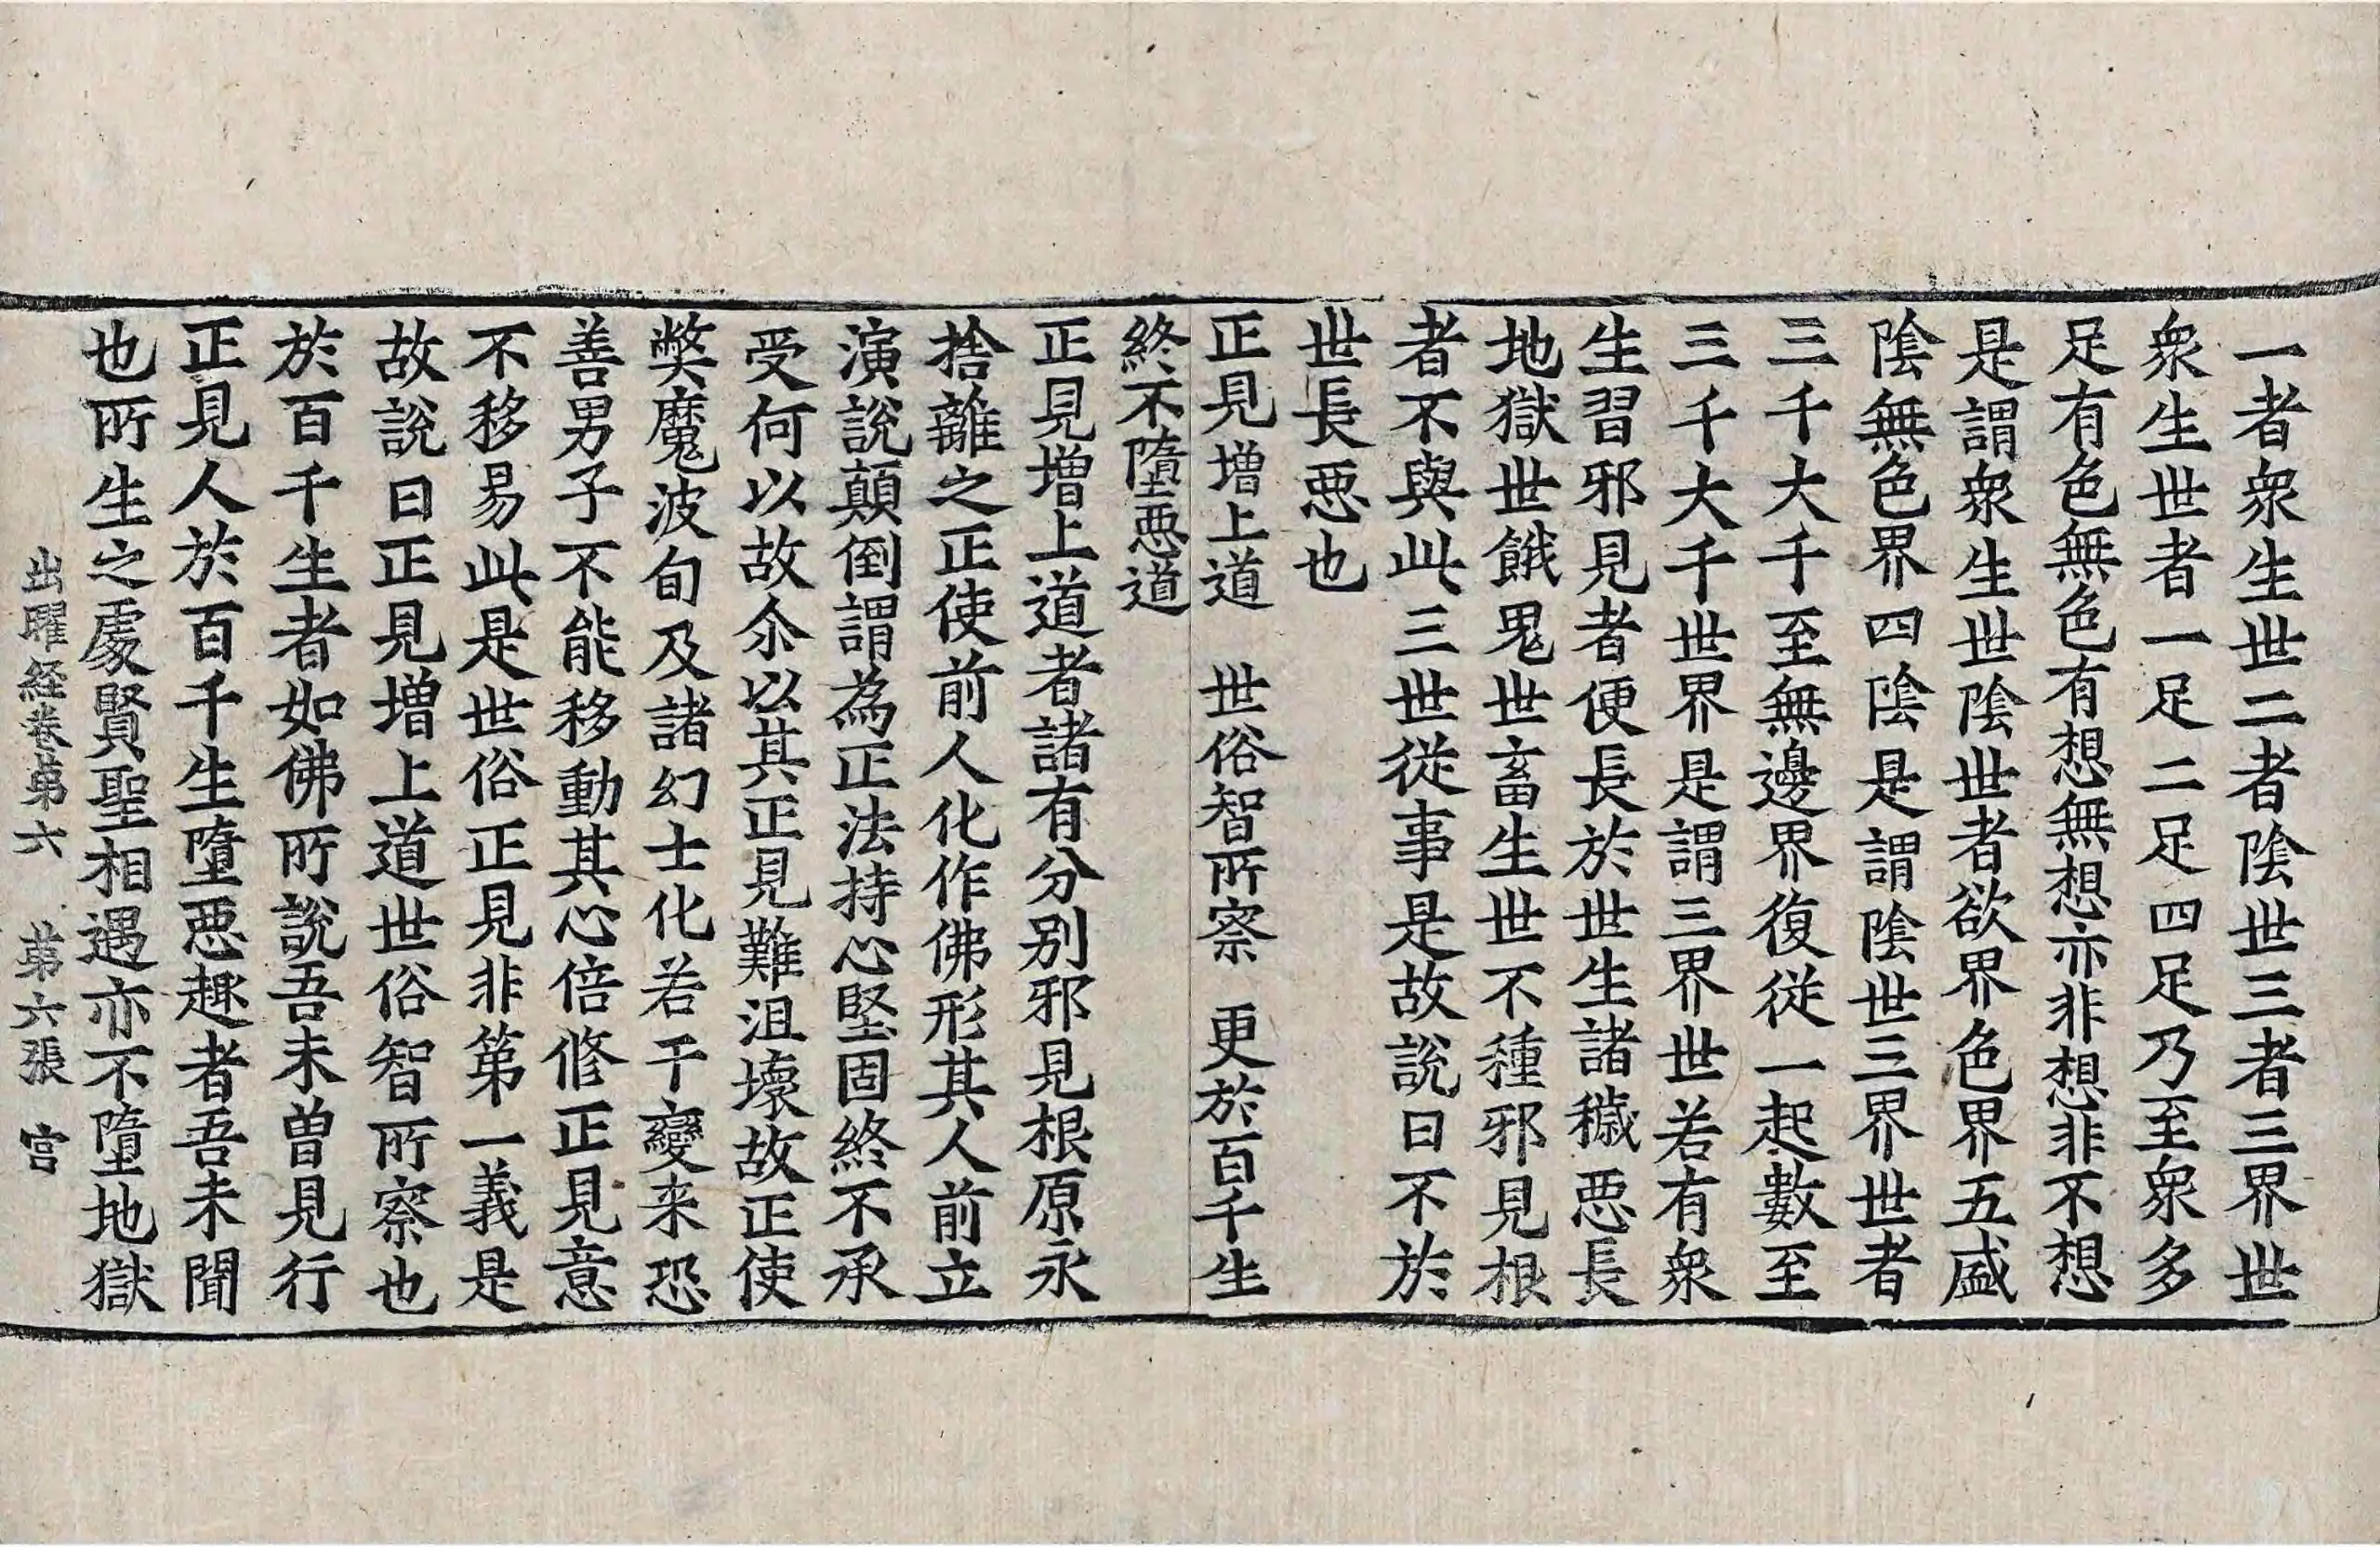 一者衆生世二者陰世三者三界世
衆生世者一足二足四足乃至衆多
足有色無色有想無想亦非想非不想
是謂衆生世陰世者欲界色界五盛
陰無色界四陰是謂陰世三界世者
三千大千至無邊界復從一起數至
三千大千世界是謂三界世若有衆
生習邪見者便長於世生諸穢惡長
地獄世餓鬼世畜生世不種邪見根
者不與此三世從事是故說曰不於
世長惡也
正見增上道　世俗智所察　更於百千生
終不墮惡道
正見增上道者諸有分别邪見根原永
捨離之正使前人化作佛形其人前立
演說顛倒謂為正法持心堅固終不承
受何以故尒以其正見難沮壞故正使
弊魔波旬及諸幻士化若干變来恐
善男子不能移動其心倍修正見意
不移易此是世俗正見非第一義是
故說曰正見增上道世俗智所察也
於百千生者如佛所說吾未曽見行
正見人於百千生墮惡趣者吾未聞
也所生之處賢聖相遇亦不墮地獄
出曜経卷苐六　苐六張　宫